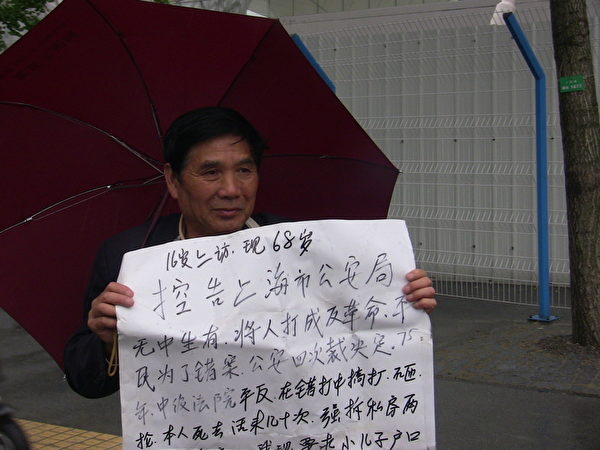 16岁上访.现68岁
控告上海市公安局
无中生有.将人打成反革命.不
民为了错案.公安四次裁决定.75
年.中级法院平反.在错打中搞打.不
抢.本人死去活来几十次.强拆私房两
小儿子户口